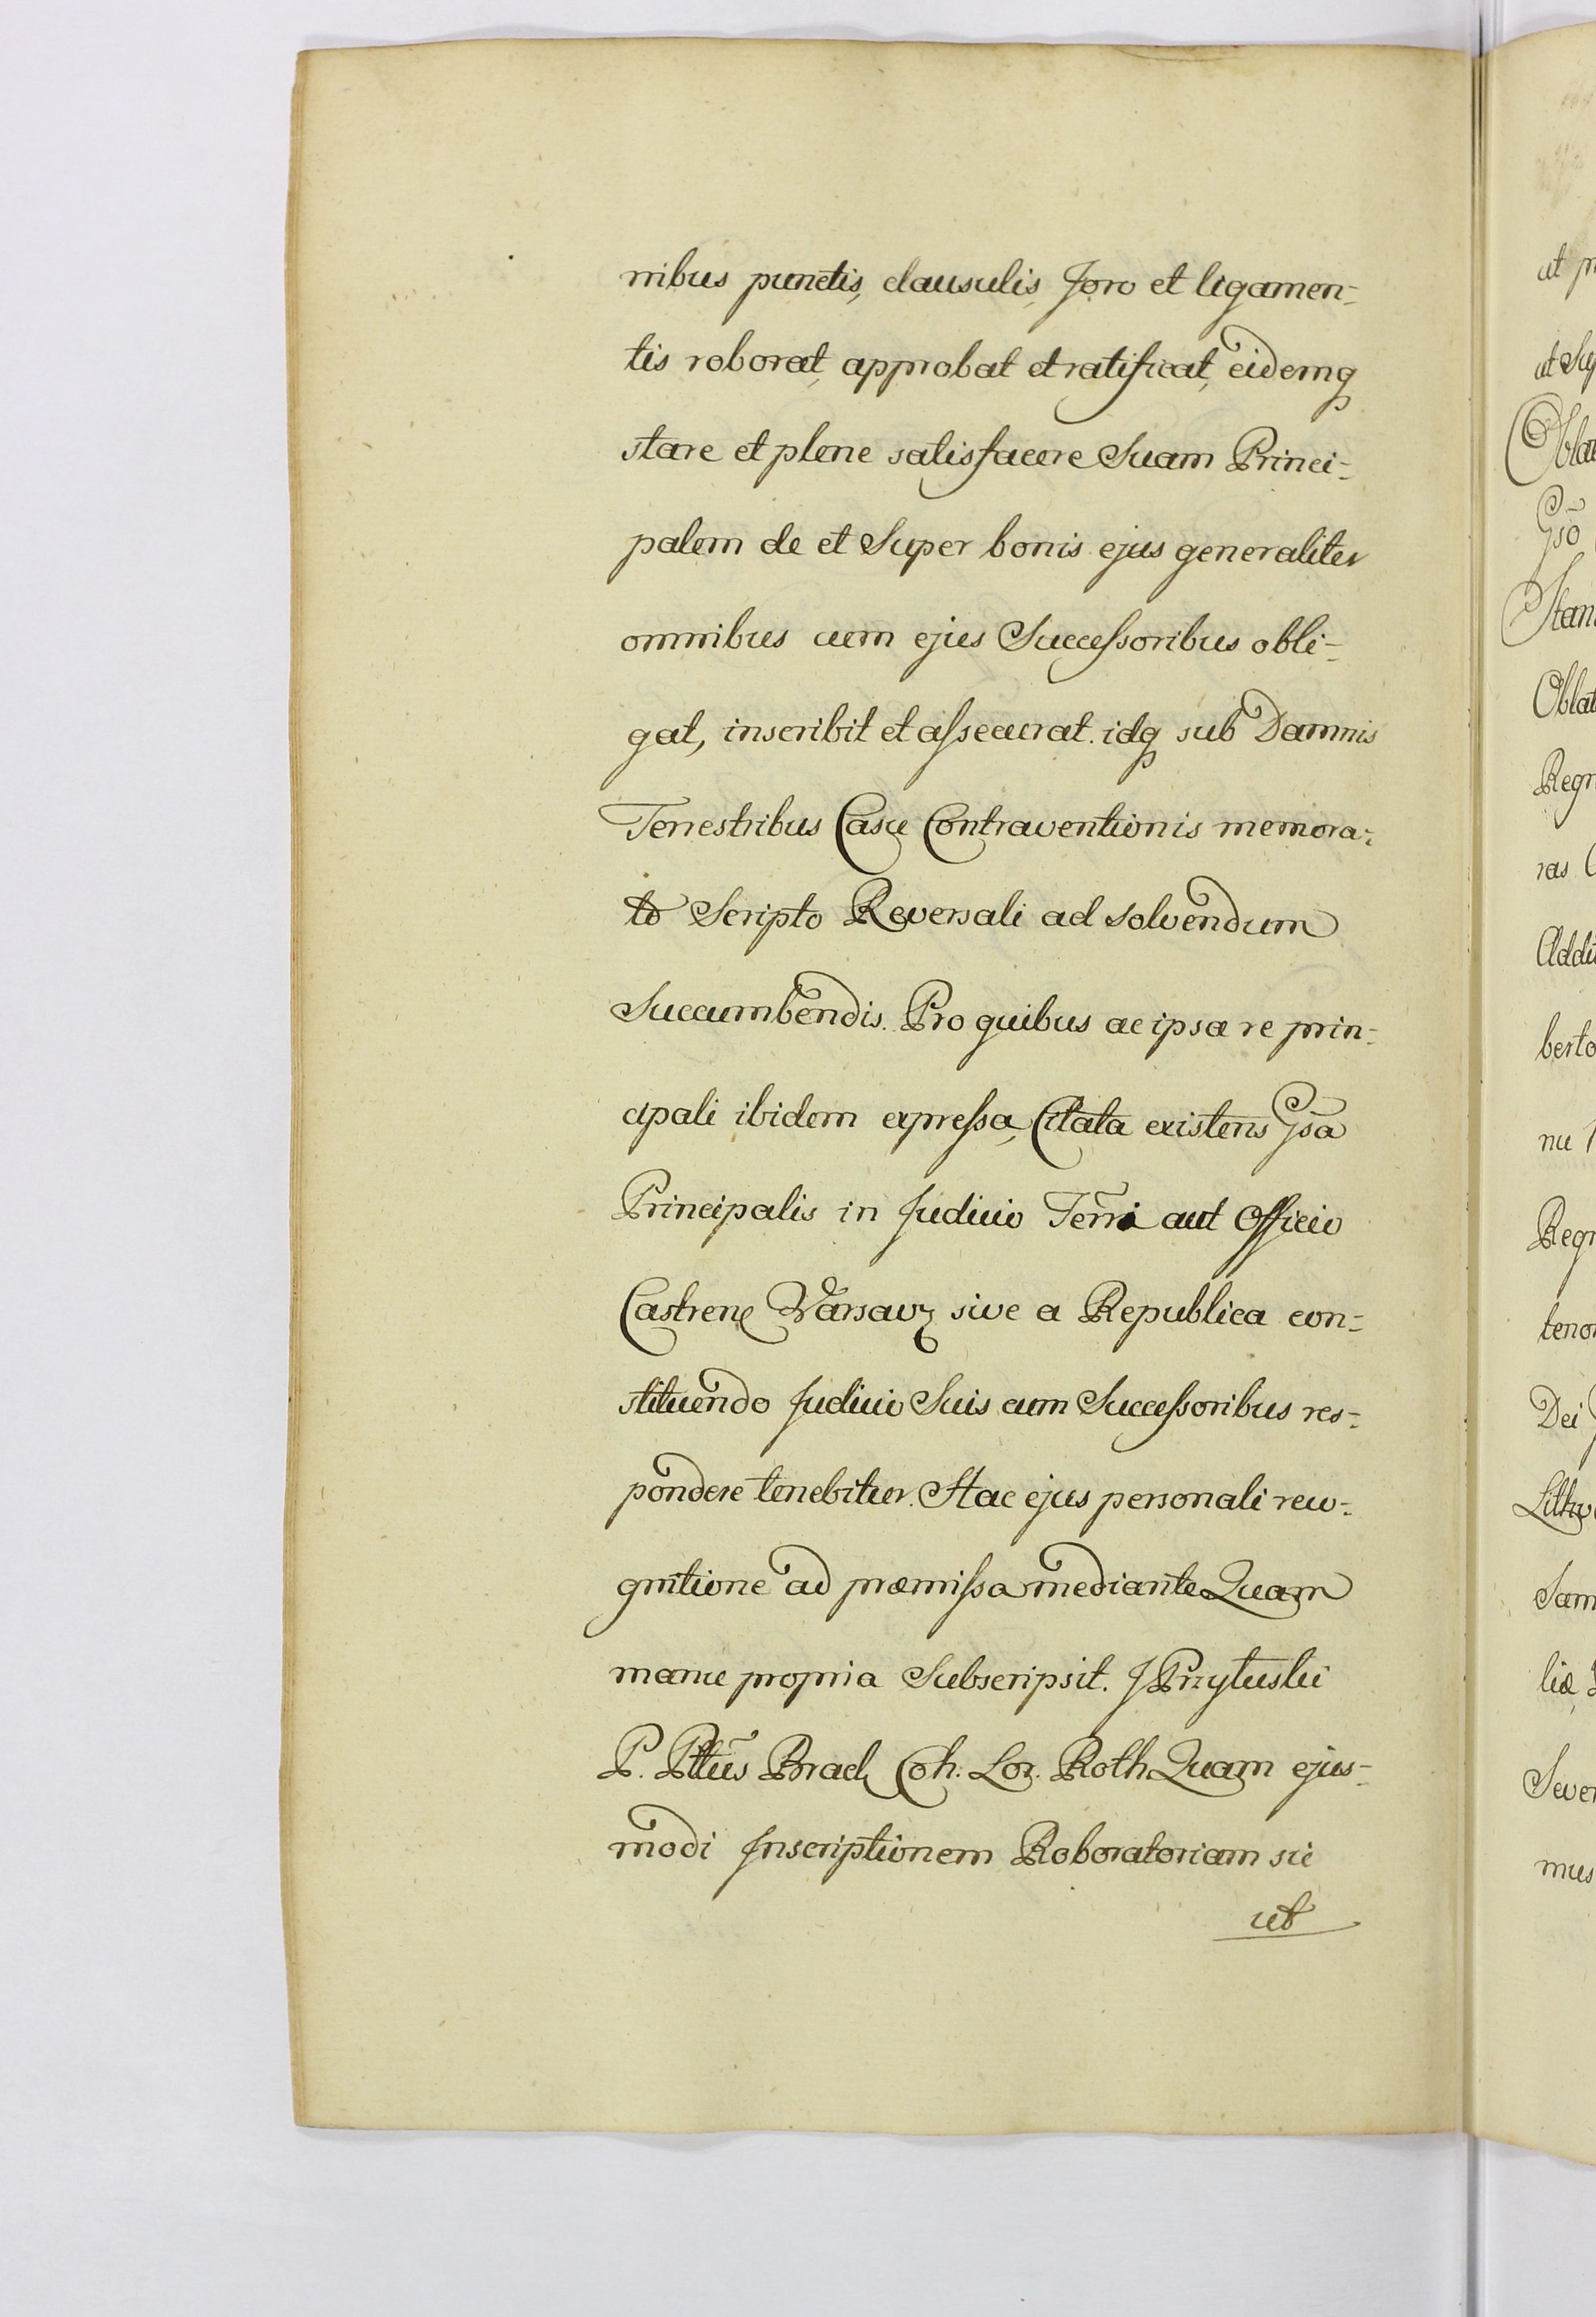 nibus punctis, clausulis, foro et ligamen=
tis roborat, approbat et ratificat, eidemq
stare et plene satisfacere Suam Princi=
palem de et Super bonis ejus generaliter
omnibus cum ejus Successoribus obli=
gat, inscribit et assecurat. idq sub Damnis
Terrestribus Casu Contraventionis memora=
to Scripto Reversali ad solvendum
Succumbendis. Pro quibus ac ipsa re prin=
cipali ibidem expressa, Citata existens Gsã
Principalis in Judicio Terri aut Officio
Castren Varsav sive a Republica con=
stituendo Judicio Suis cum Successoribus res=
pondere tenebitur. Hac ejus personali reco=
gnitione ad præmissa mediante Quam
manu propria Subscripsit. J Przytuski
P. Pttũs Brach Coh. Lor. Roth Quam ejus=
modi Inscriptionem Roboratoriam sic
ut
ut
Regn
ras
berto
nu
Regn
Dei
Sam
liæ
mus